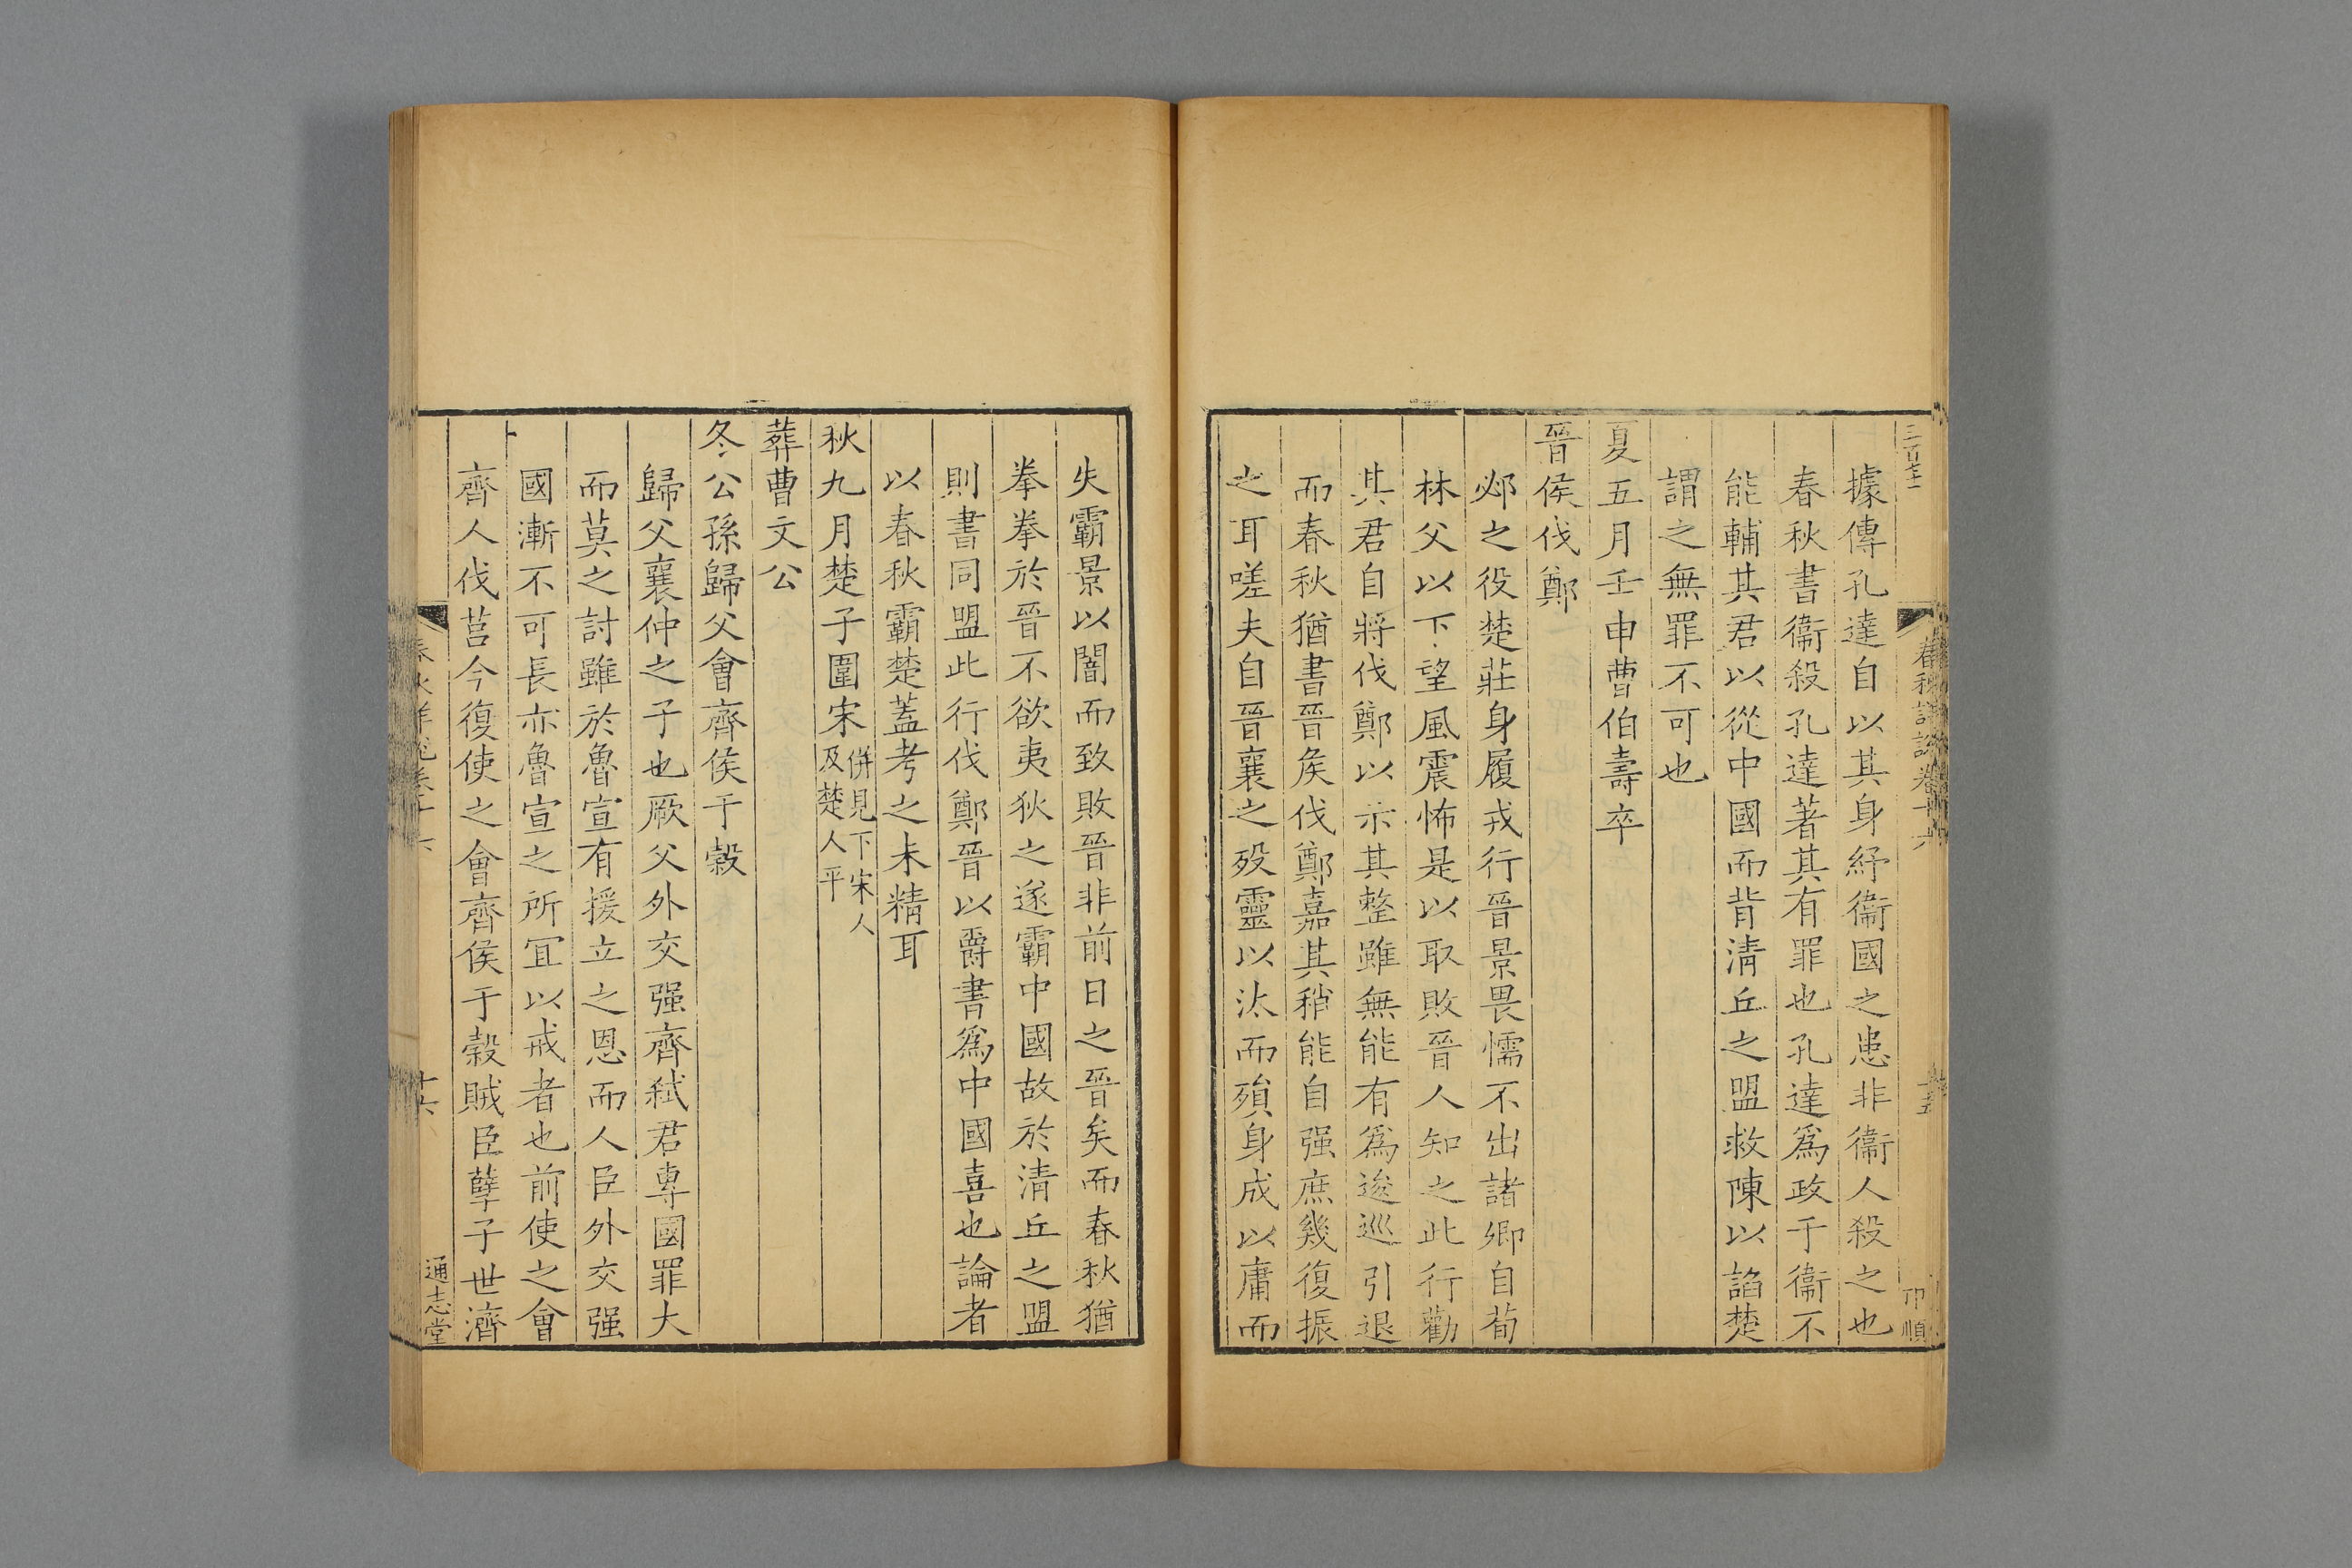 據傳孔達自以其身紓衞國之患非衞人殺之也
春秋書衞殺孔達著其有罪也孔達爲政于衞不
能輔其君以從中國而背淸丘之盟救陳以諂楚
謂之無罪不可也
夏五月壬申曹伯壽卒
晉侯伐鄭
邲之役楚莊身履戎行晉景畏懦不出諸卿自荀
林父以下望風震怖是以取敗晉人知之此行勸
其君自將伐鄭以示其整雖無能有爲逡巡引退
而春秋猶書晉矦伐鄭嘉其稍能自强庶幾復振
之耳嗟夫自晉襄之歿靈以汰而殞身成以庸而
失霸景以闇而致敗晉非前日之晉矣而春秋猶
拳拳於晉不欲夷狄之遂霸中國故於清丘之盟
則書同盟此行伐鄭晉以爵書爲中國喜也論者
以春秋霸楚蓋考之未精耳
秋九月楚子圍宋
併見下宋人
及楚人平
葬曹文公
冬公孫歸父會齊侯于穀
歸父襄仲之子也厥父外交强齊弑君專國罪大
而莫之討雖於魯宣有援立之恩而人臣外交强
國漸不可長亦魯宣之所宜以戒者也前使之會
齊人伐莒今復使之會齊侯于穀賊臣孽子世濟
通志堂